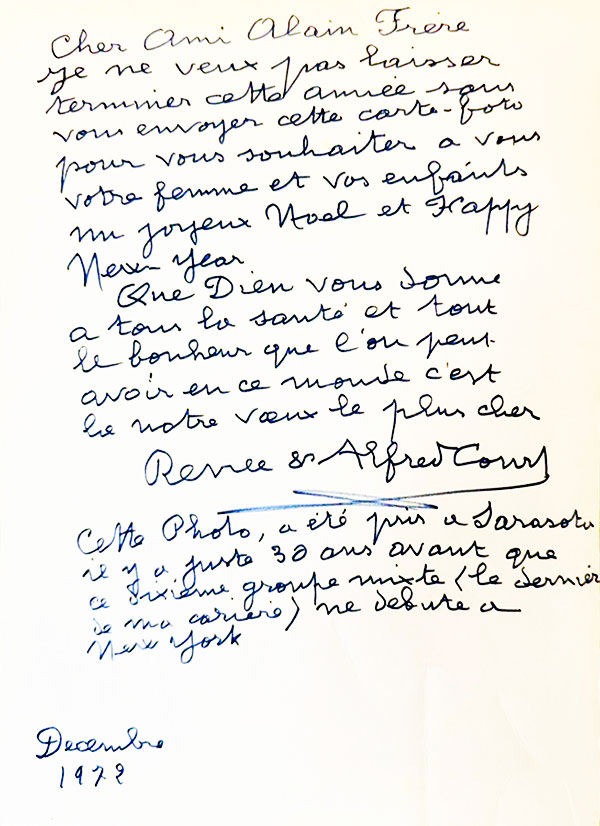 Cher Ami Alain Frère
Je ne veux pas laisser
terminer cette année sans
vous envoyer cette carte-foto
pour vous souhaiter a vous
votre femme et vos enfants
un joyeux Noel et Happy
New Year
Que Dieu vous donne
a tous la santé et tout
le bonheur que l'on peut
avoir en ce monde c'est
la notre vœux le plus cher
Renée & Alfred Court
Cette Photo, a été pris a Sarasota
il y a juste 30 ans avant que
ce sixième groupe mixte (le dernier
de ma cariere) ne debute a
New York
Decembre
1972